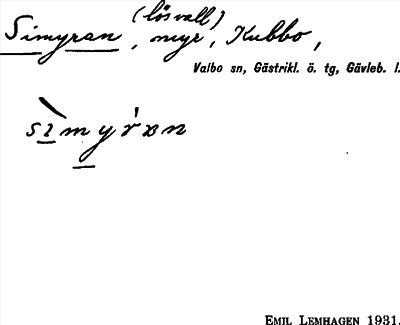 (lösvall)
Simyran, myr, Kubbo,
Valbo sn, Gästrikl. ö. tg, Gävleb. l.
EMIL LEMHAGEN 1931.